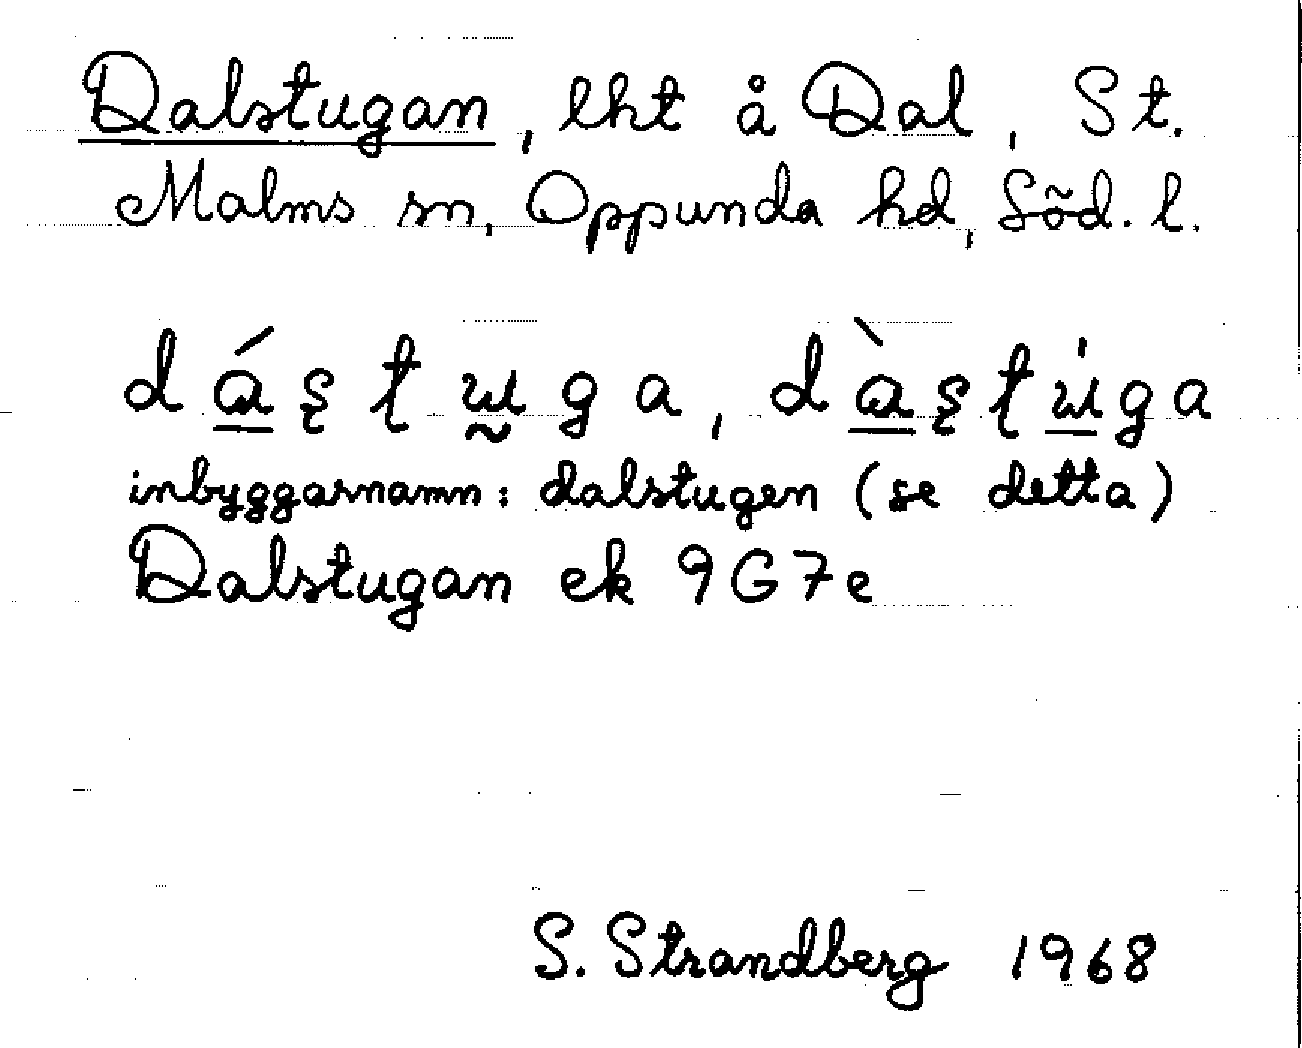 Dalstugan, lht å Dal, St.
Malms sn, Oppunda hd, Söd. l.
dá̱ʂʈɯ̰ga, dà̱ʂʈɯ̱́ga
inbyggarnamn: dalstugen (se detta)
Dalstugan ek 9G7e
S. Strandberg 1968